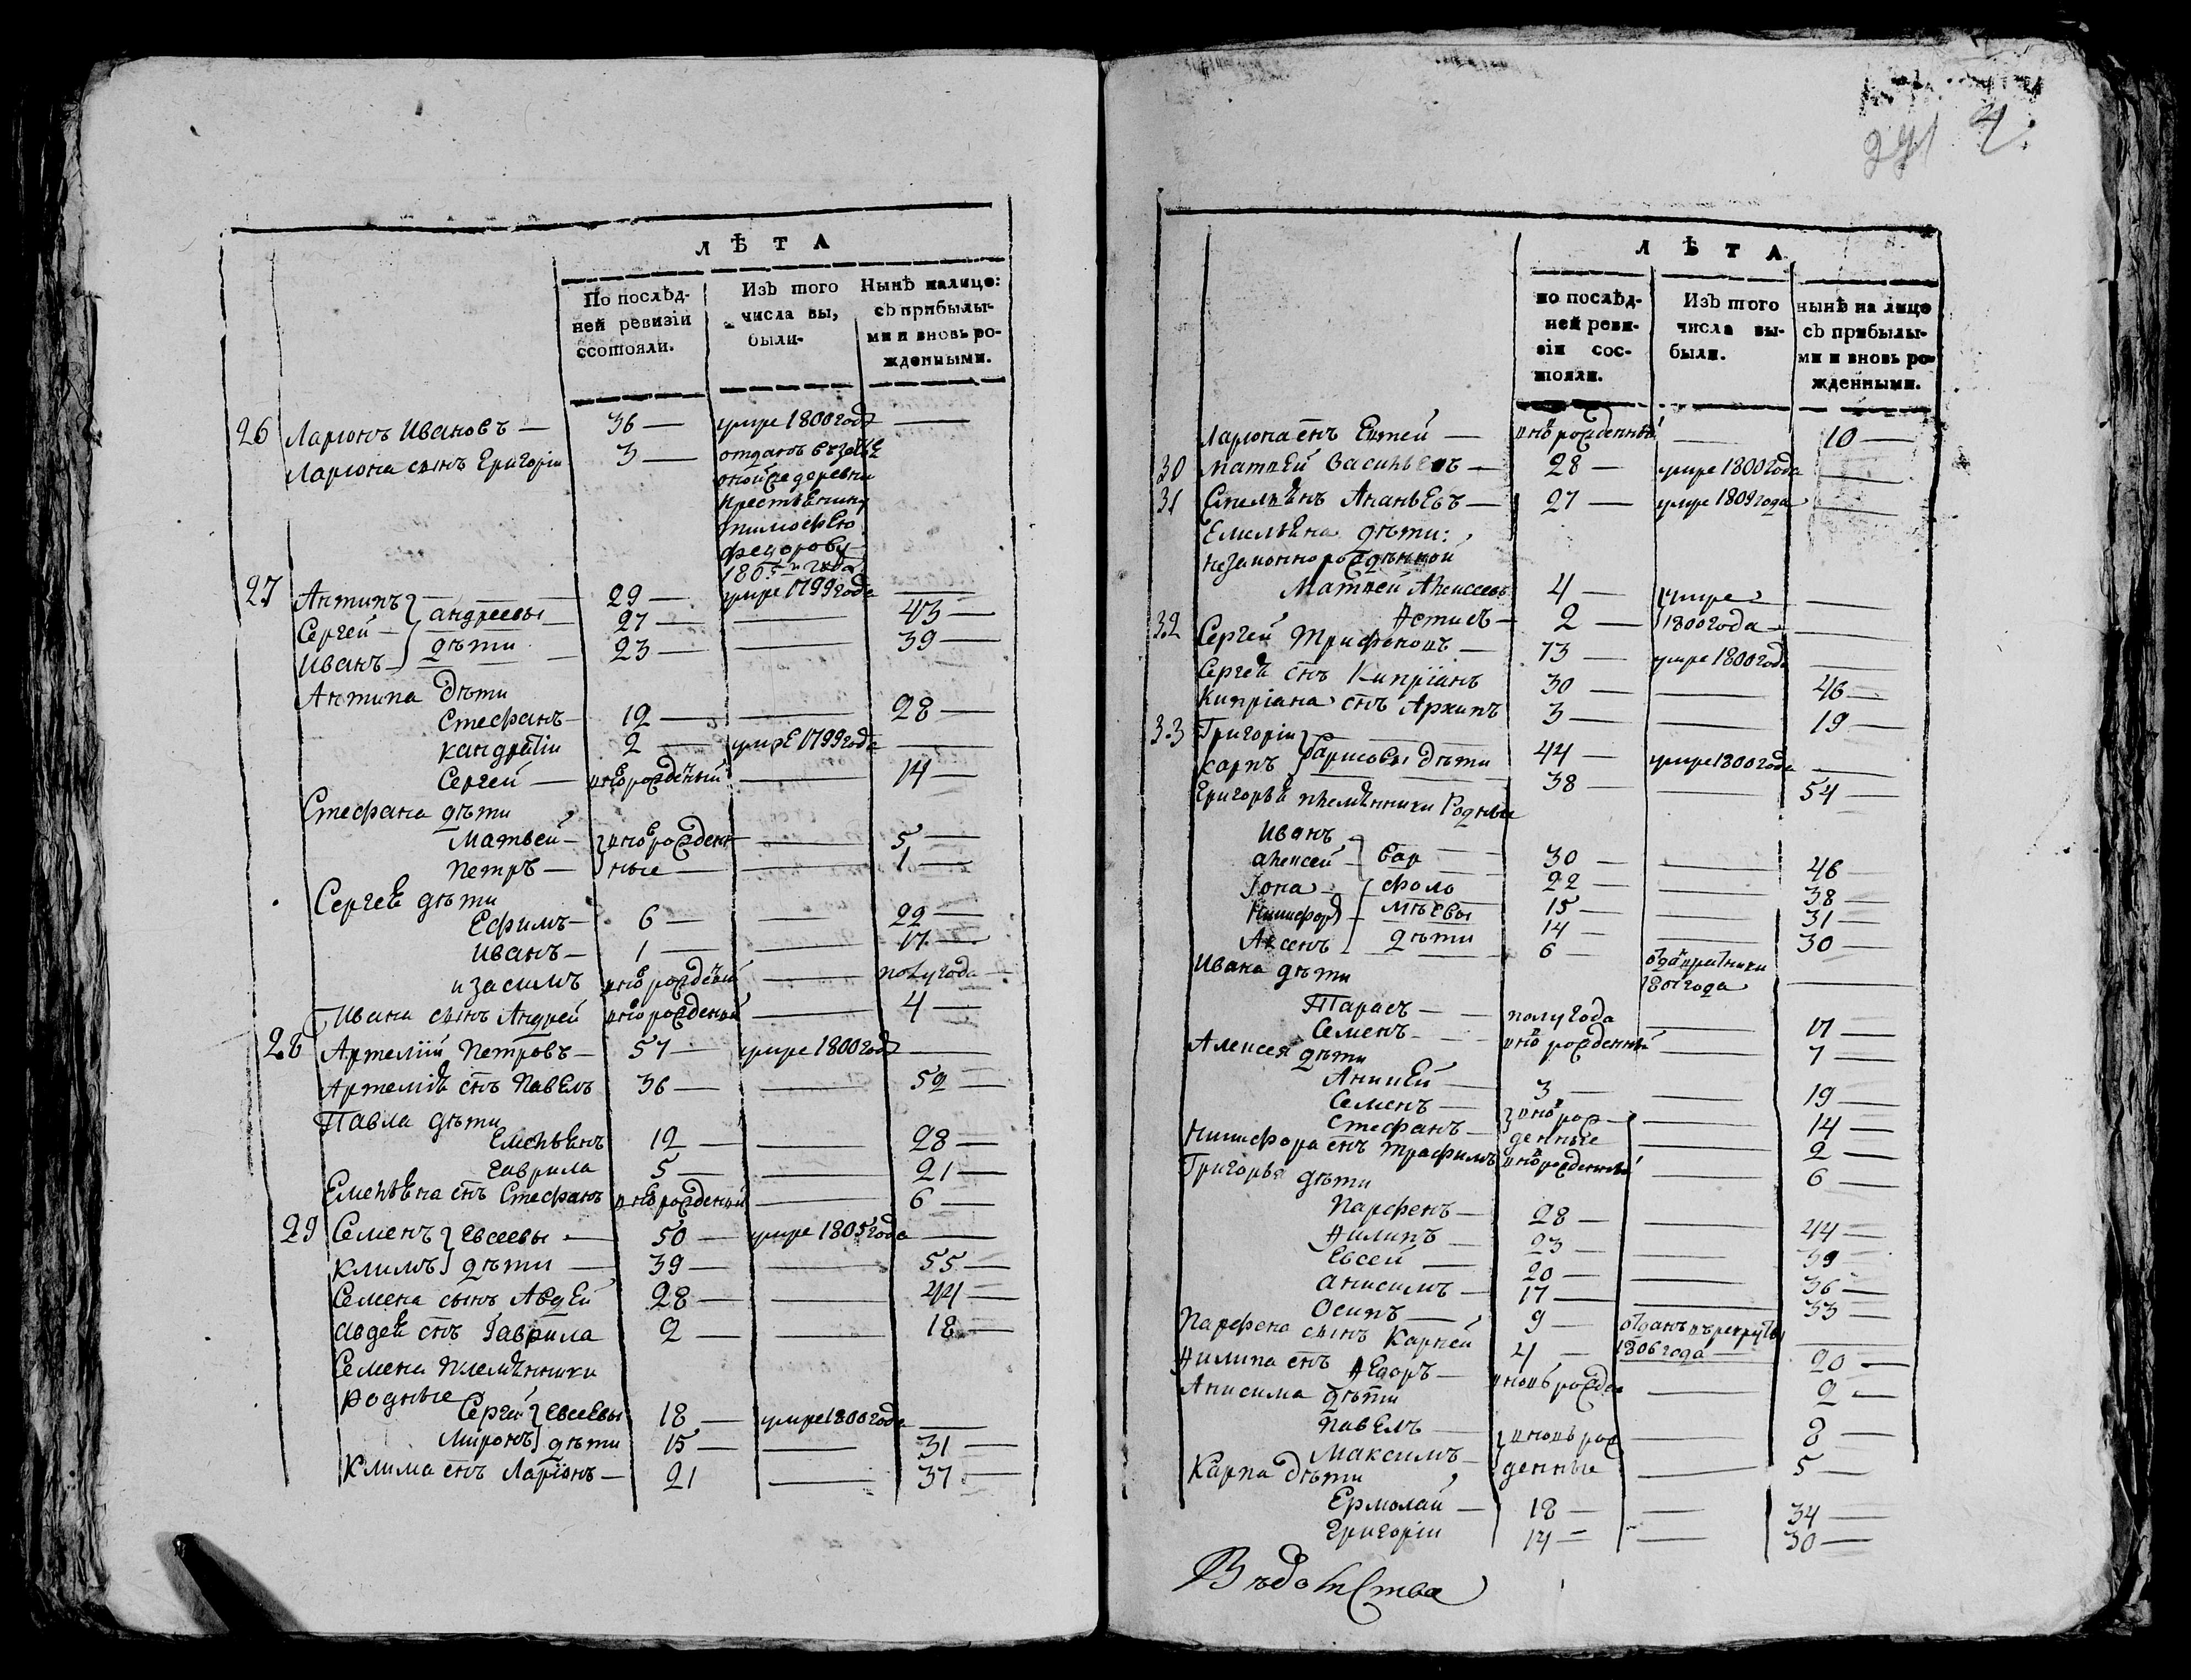 ЛѢТА
По послѣд-
ней ревизіи
ссотояли.
Изъ того
числа вы,
были-
Нынѣ налицо:
съ прибылы-
ми и вновь ро-
жденными.
26 Ларионъ Ивановъ — 36 — умре 1800 года —
Лариона сынъ Григори 3 — отданъ въ
оной же деревни
крестьянину
тимофею
федорову
1805 года
27 Антипъ — 29 — умре 1799 года —
Сергей — андреевы 27 — — 43 —
Иванъ — дѣти 23 — — 39 —
Антипа дѣти
Стефанъ — 12 — — 28 —
кандратiи 2 — умре 1799 года —
Сергей — вновьрожденый — 14 —
Стефана дѣти
Матвей — вноврожден — 5 —
Петръ — ные — 1 —
Сергея дѣти
Ефимъ — 6 — — 22 —
иванъ — 1 — — 17 —
изасимъ вноврожденый — полугода —
Ивана сынъ Андрей вноврожденый — 4 —
28 Артемiй Петровъ — 57 — умре 1800 год —
Артемiя снъ Павелъ 36 — — 52 —
Павла дѣти
Емельянъ 12 — — 28 —
Гаврила 5 — — 21 —
Емельяна снъ Стефанъ вноврожденый — 6 —
29 Семенъ евсеевы — 50 — умре 1805 года —
Климъ дѣти — 39 — — 55 —
Семена сынъ Авдей 28 — — 44 —
Авдея снъ Гаврила 2 — — 18 —
Семена племянники
родные
Сергей Евсеевы 18 — умре 1800 года —
Миронъ дѣти 15 — — 31 —
Клима снъ Ларiонъ — 21 — 37 —
4.
ЛѢТА
по послѣд-
ней реви-
зіи сос-
тояли.
Изъ того
числа вы-
были.
нынѣ на лицо
съ прибылы-
ми и вновь ро-
жденными.
Лариона снъ Евтей — вноврожденный — 10 —
30 Матвей Васильевъ — 28 — умре 1800 года —
31 Емельянъ Ананьевъ — 27 — умре 1809 года —
Емельяна дѣти:
незаконнорожденной
Матвей Алексеевъ 4 — умре —
2 — 1800 года —
32 Сергей Трифоновъ — 73 — умре 1800 года —
Сергея снъ Кипрiянъ 30 — — 46 —
Киприана снъ Архипъ 3 — — 19 —
33 Григорiи — 44 — умре 1800 года —
Карпъ Барисовы дѣти 38 — — 54 —
Григорья племянники Родные
Иванъ — 30 — — 46 —
Алексей — Вар 22 — — 38 —
Iона — фоло 15 — — 31 —
Никифоръ — мѣевы 14 — — 30 —
Аксенъ дѣти 6 —
1807 года —
Ивана дѣти
Тарасъ — полугода — 17 —
Семенъ — вноврожденный — 7 —
Алексея дѣти
Аникей — 3 — — 19 —
Семенъ — вноврож — 14 —
Стефанъ — денные — 2 —
Никифора снъ Трафимъ вноврожденный — 6 —
Григорья дѣти
Парфенъ — 28 — — 44 —
Филипъ — 23 — — 39 —
Евсей — 20 — — 36 —
Анисимъ — 17 — — 33 —
Осипъ — 9 — отданъ въ рекруты —
1806 года
Парфена сынъ Карней 4 — 20 —
Филипа снъ Федоръ — вновьрожде — 2 —
Анисима дѣти
Павелъ — вновьрож — 8 —
Максимъ — денные — 5 —
Карпа дѣти
Ермолай — 18 — — 34 —
Григорiи 14 — — 30 —